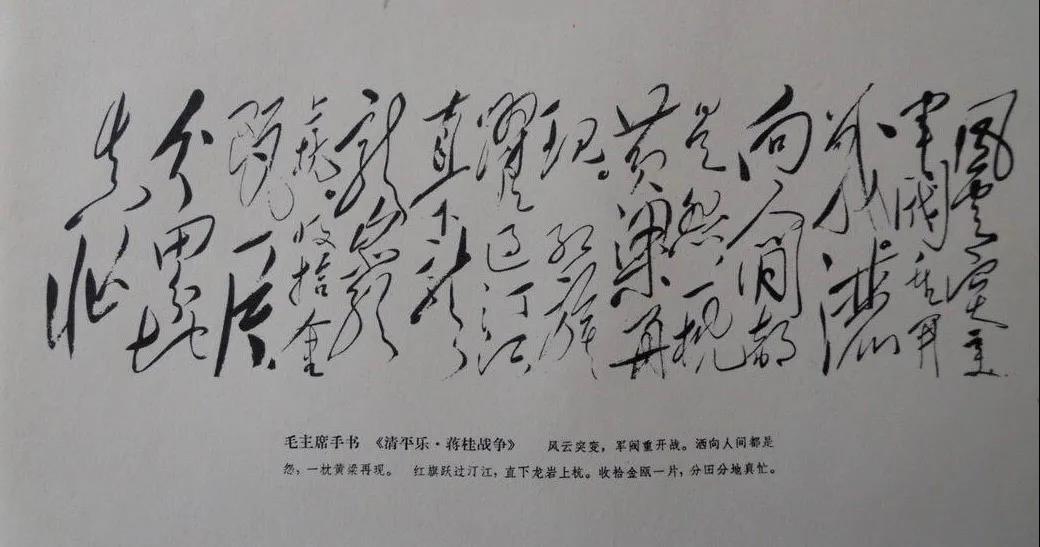 風云突变
軍閥重開
战洒
向人間都
是怨，一枕
黄粱再
现。红旗
躍过汀江
直下
龍岩
上杭。收拾金
甌一片
分田分地
真忙
毛主席手书 《清平乐·蒋桂战争》 风云突变，军阀重开战。洒向人间都是
怨，一枕黄粱再现。 红旗跃过汀江，直下龙岩上杭。收拾金瓯一片，分田分地真忙。